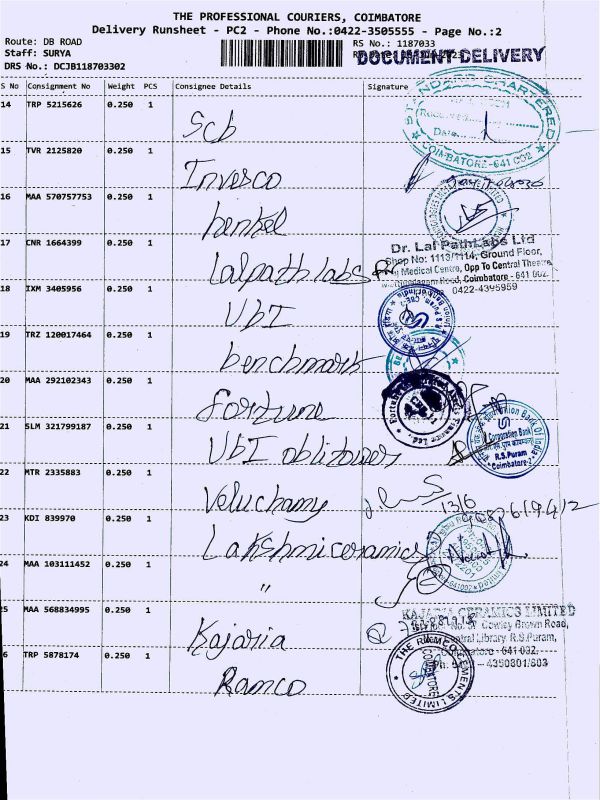 THE PROFESSIONAL COURIERS, COIMBATORE
Delivery Runsheet - PC2 - Phone No.:0422-3505555 - Page No.:2
Route: DB ROAD RS No.: 1187033
Staff: SURYA
DOCUMENT DELIVERY
DRS No.: DCJB118703302
S No Consignment No Weight PCS Consignee Details Signature
14 TRP 5215626 0.250 1 Scb
STANDARD CHARTERED
Date
COIMBATORE-641 002
15 TVR 2125820 0.250 1 Invesco
16 MAA 570757753 0.250 1 henkel
17 CNR 1664399 0.250 1 Lalpath labs
Dr. Lal PathLabs Ltd
Shop No: 1113/1114, Ground Floor,
Medical Centre, Opp To Central Theatre,
Road, Coimbatore - 641 002.
0422-4395959
18 IXM 3405956 0.250 1 UbI
19 TRZ 120017464 0.250 1 benchmark
20 MAA 292102343 0.250 1 fortune
21 SLM 321799187 0.250 1 UbI oblitowers
Union Bank Of India
Corporation Bank
R.S.Puram
Coimbatore-2
22 MTR 2335883 0.250 1 Veluchamy
13/6
23 KDI 839970 0.250 1 Lakshmi ceramics
24 MAA 103111452 0.250 1 "
25 MAA 568834995 0.250 1 Kajaria
KAJARIA CERAMICS LIMITED
Cowley Brown Road,
Central Library, R.S.Puram,
Coimbatore - 641 002.
4350801/803
26 TRP 5878174 0.250 1 Ramco
THE RAMCO CEMENTS LIMITED
COIMBATORE